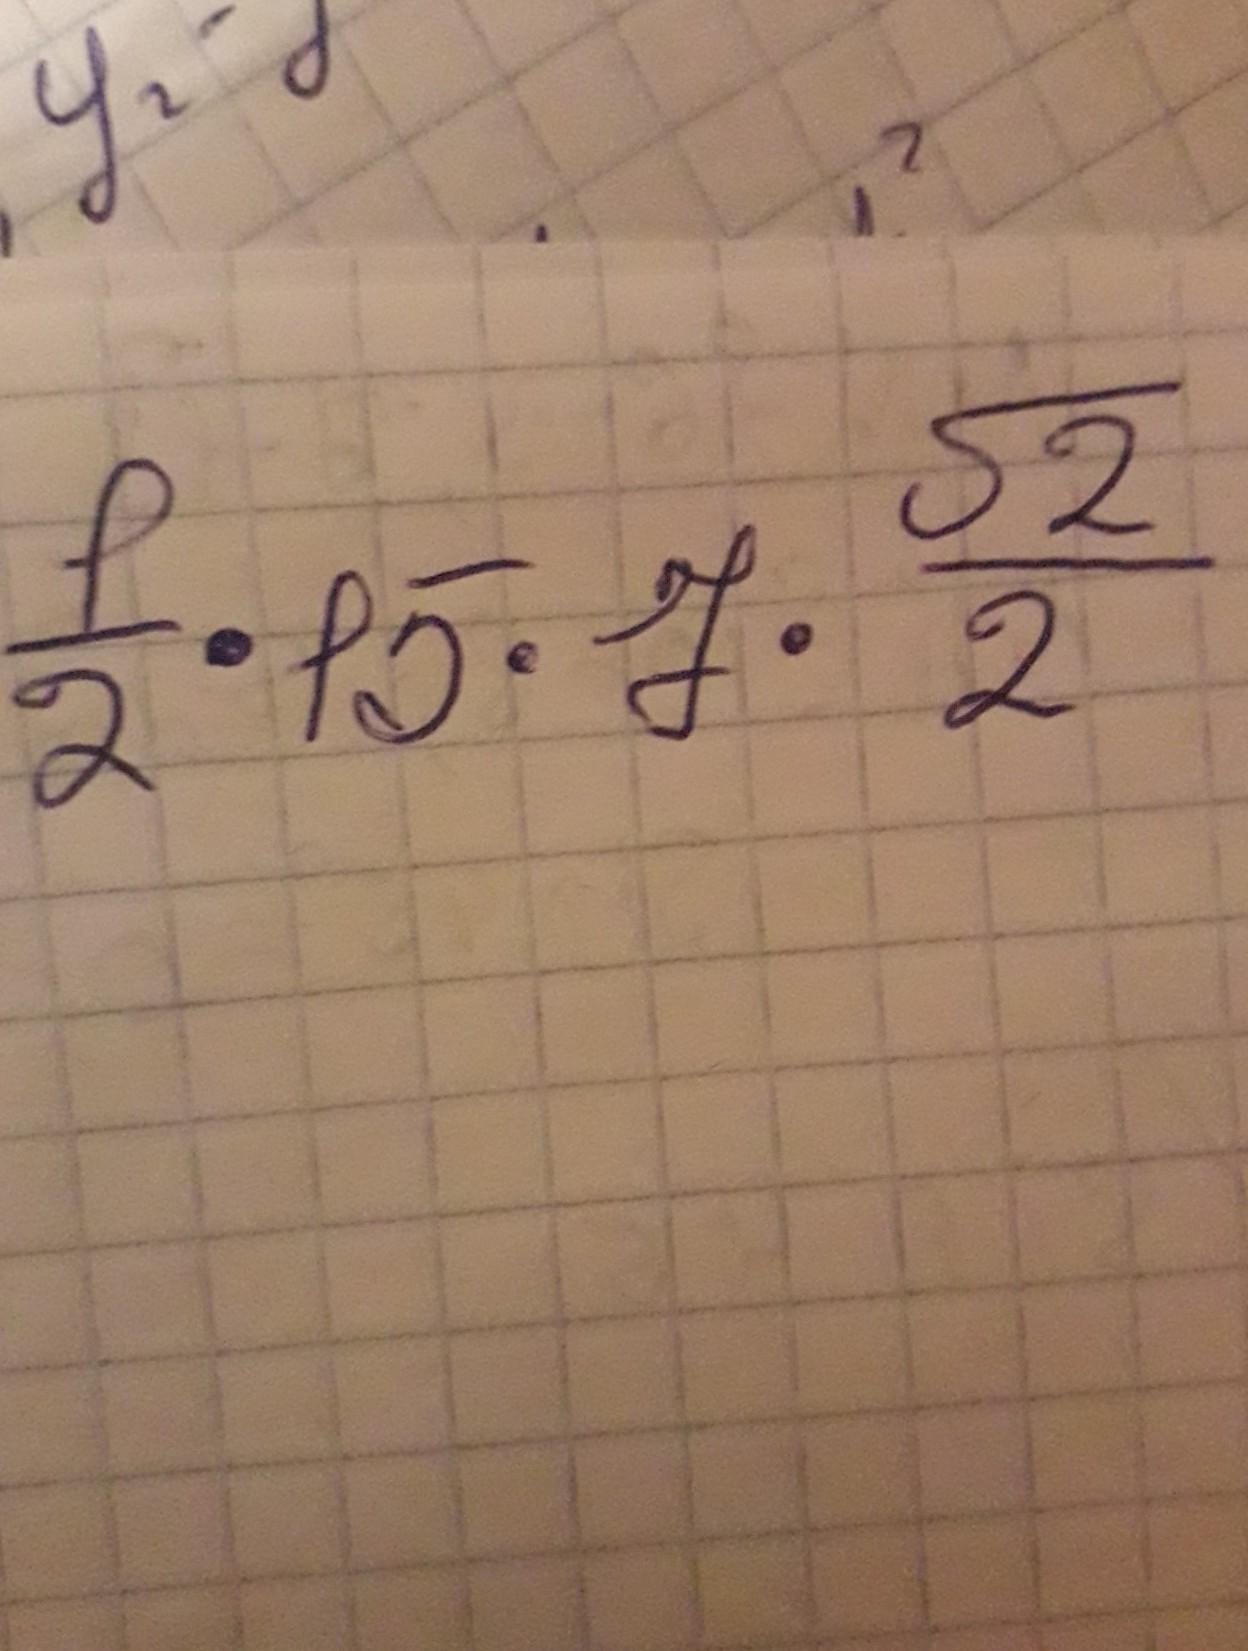 y₂
1/2 · 15 · 7 · √2/2